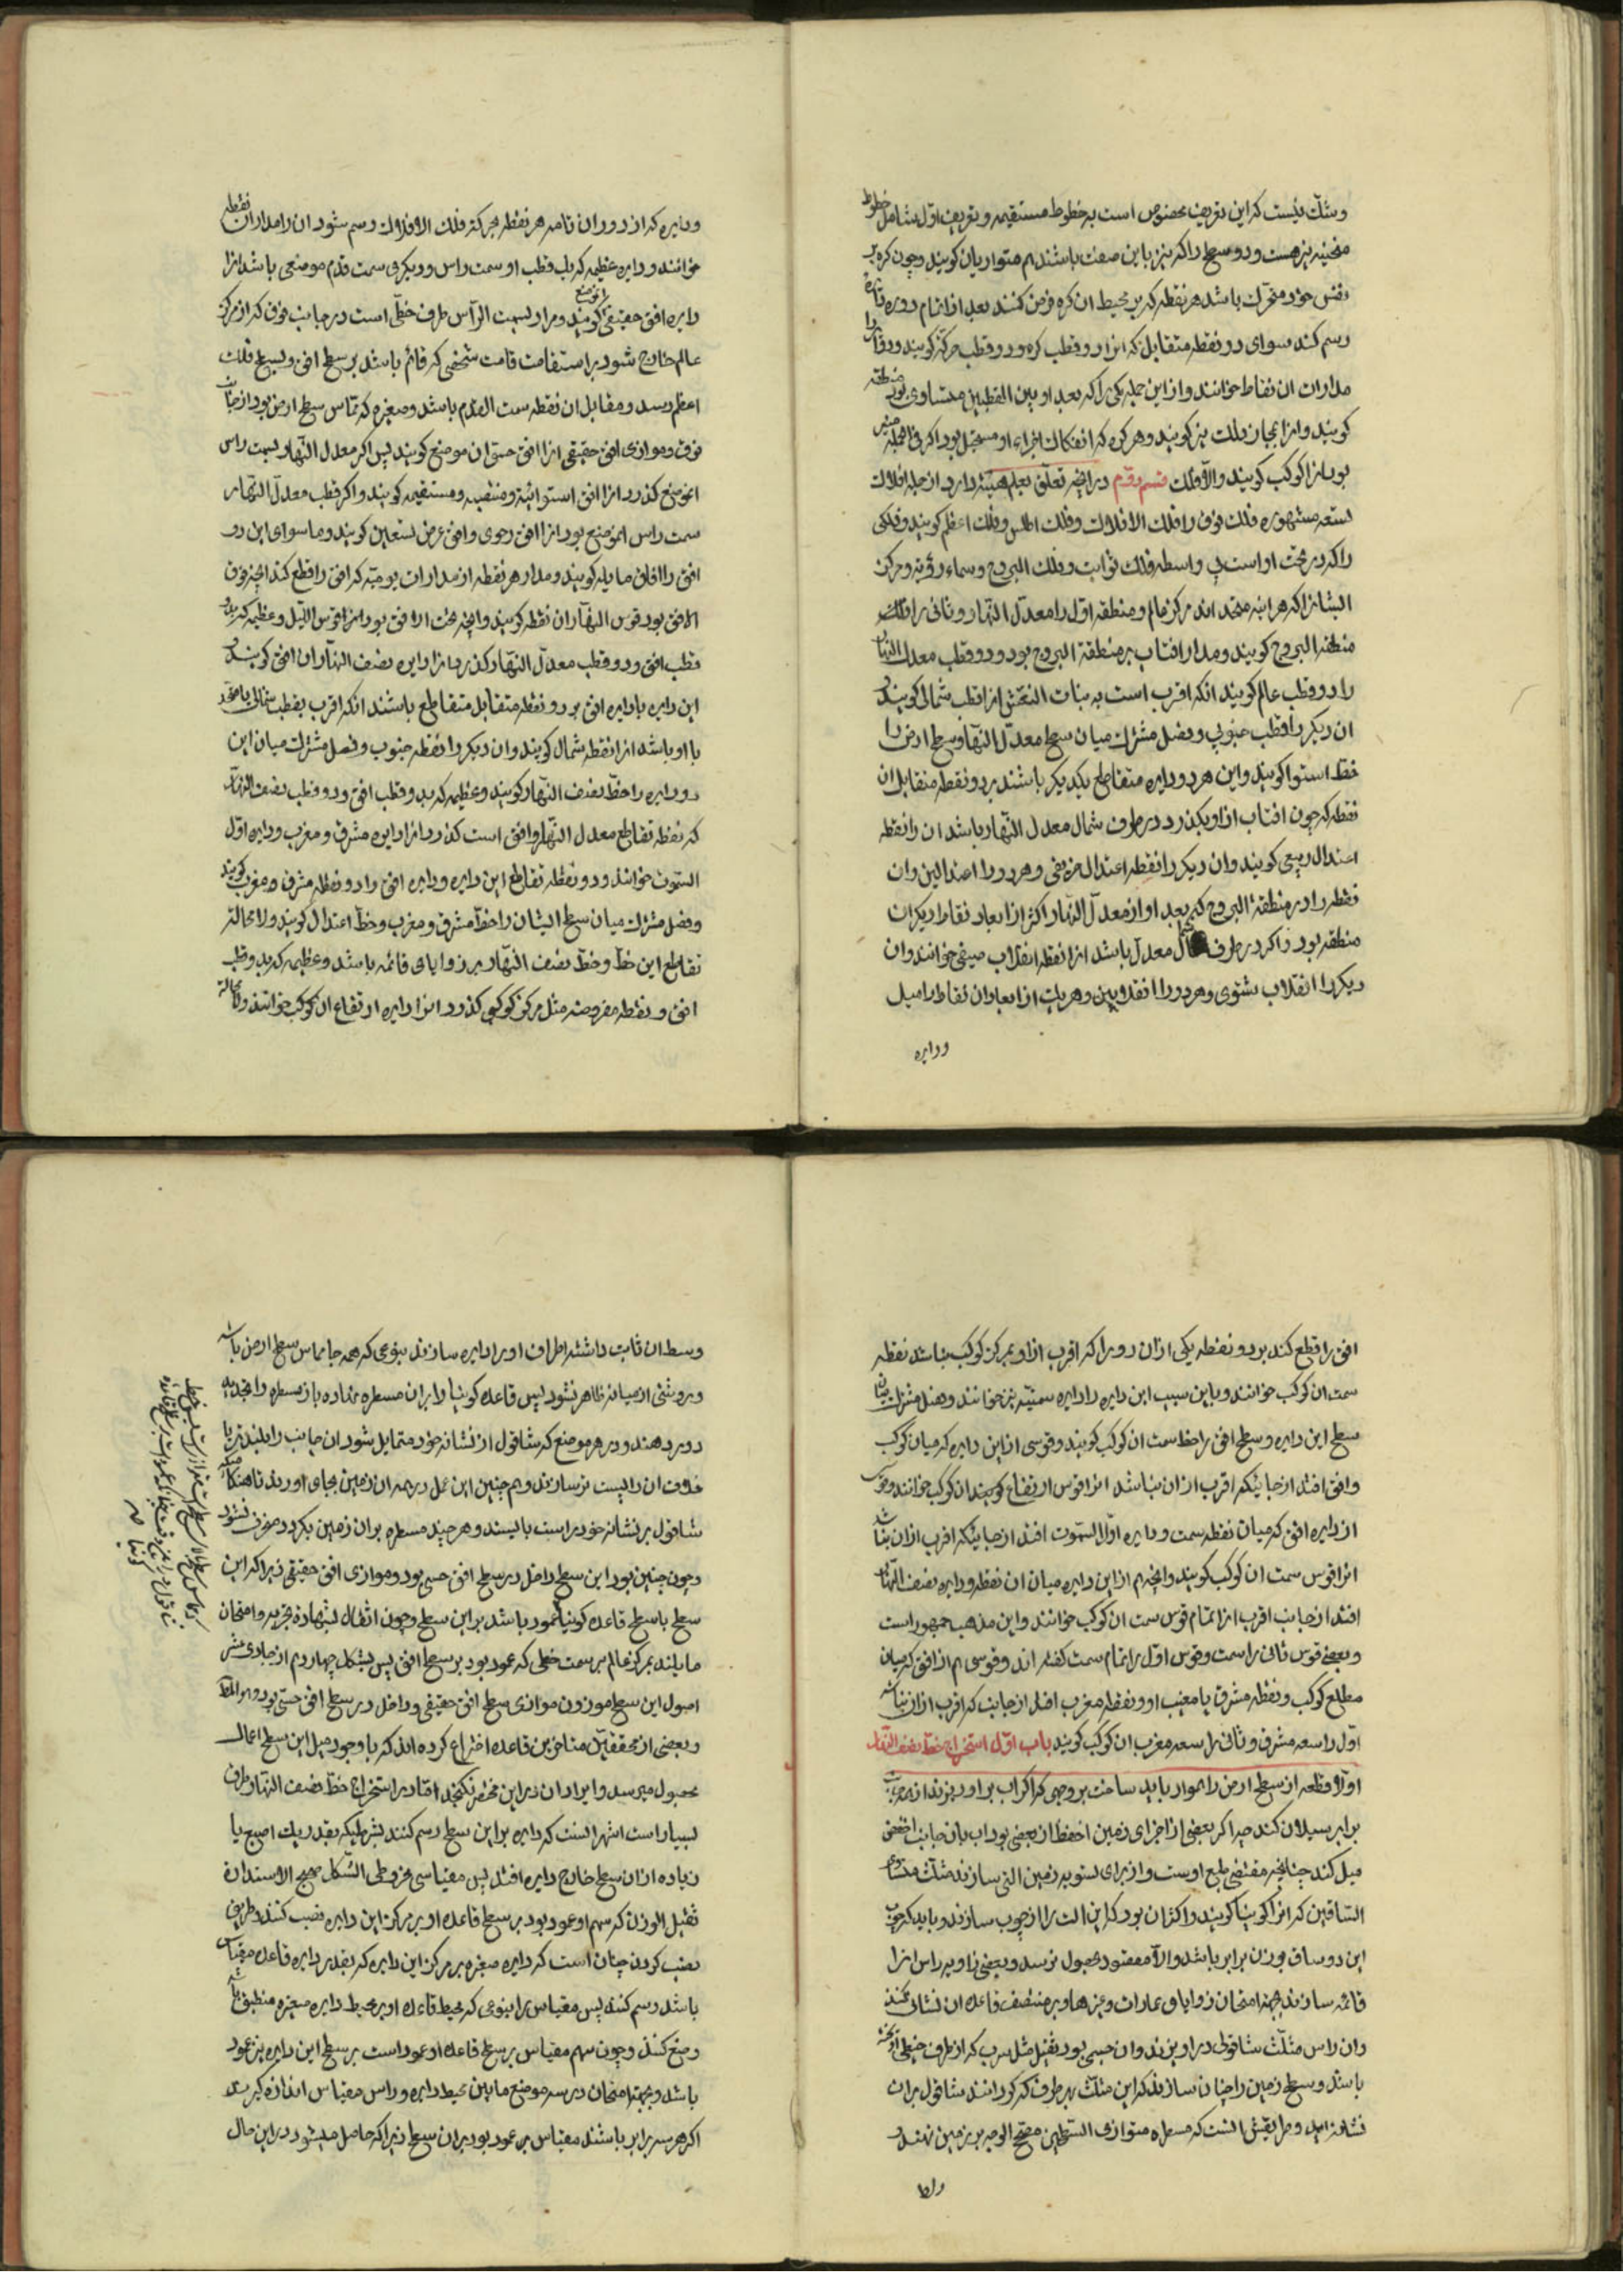 وشک نیست که این تعریف مخصوص است به خطوط مستقیمه و تعریف اول شامل خطوط
منحنیه نیز هست و دو سطح را که نیز باین صفت باشند هم متوازیان کویند و چون کره بر
نفس خود متحرک باشد هر نقطه که بر محیط ان کره فرض کنند بعد از اتمام دوره دایره
رسم کند سوای دو نقطه متقابل که انرا دو قطب کره و دو قطب حرکة کویند و دوایر را
مدارات ان نقاط خوانند و از این جمله یکی را که بعد او بین القطبین متساوی بود منطقه
کویند و انرا مجازا فلک نیز کویند و هر کره که انفکاک اجزاء او مستحیل بود اکر فی الجمله منیر
بود انرا کوکب کویند والا فلک قسم دوّم در انچه تعلّق بعلم هیئة دارد از جمله افلاک
تسعه مشهوره فلک فوق را فلک الافلاک و فلک اطلس و فلک اعظم کویند و فلکی
را که در تحت او است بی واسطه فلک ثوابت و فلک البروج و سماء رؤیة و مرکز
ایشانرا که هر اینه متحد اند مرکز عالم و منطقه اول را معدّل النهار و ثانی را فلک
منطقة البروج کویند و مدار افتاب بر منطقة البروج بود و دو قطب معدل النهار
را دو قطب عالم کویند انکه اقرب است به بنات النعش انرا قطب شمالی کویند و
ان دیکر را قطب جنوبی و فصل مشترک میان سطح معدّل النهار و سطح ارض را
خط استوا کویند و این هر دو دایره متقاطع یکدیکر باشند بر دو نقطه متقابل ان
نقطه که چون افتاب از او بکذرد در طرف شمال معدل النهار باشد ان را نقطه
اعتدال ربیعی کویند و ان دیکر را نقطه اعتدال خریفی و هر دو را اعتدالین و ان
نقطه را در منطقة البروج که بعد او از معدّل النهار اکثر از ابعاد نقاط دیکر ان
منطقه بود و اکر در طرف شمال معدل باشد انرا نقطه انقلاب صیفی خوانند و ان
دیکر را انقلاب شتوی و هر دو را انقلابین و هر یک از ابعاد ان نقاط را میل
و دایره
و دایره که از دوران تامه هر نقطه بحرکة فلک الافلاک رسم شود ان را مدار ان نقطه
خوانند و دایره عظیمه که یک قطب او سمت راس و دیکری سمت قدم موضعی باشد انرا
دایره افق حقیقی انموضع کویند و مراد بسمت الرأس طرف خطّی است در جانب فوق که از مرکز
عالم خارج شود بر استقامت قامت شخصی که قائم باشد بر سطح افق و بسطح فلک
اعظم رسد و مقابل ان نقطه سمت القدم باشد و صغیره که مماس سطح ارض بود از جانب
فوق و موازی افق حقیقی انرا افق حسّی ان موضع کویند پس اکر معدل النهار بسمت راس
انموضع کذرد انرا افق استوائیة و منتصبه و مستقیمه کویند و اکر قطب معدّل النهار
سمت راس انموضع بود انرا افق رحوی و افق عرض تسعین کویند و ما سوای این دو
افق را افاق مایله کویند و مدار هر نقطه از مدارات یومیّه که افق را قطع کند انچه فوق
الافق بود قوس النهار ان نقطه کویند و انچه تحت الافق بود انرا قوس اللیل و عظیمه که بدو
قطب افق و دو قطب معدّل النهار کذرد انرا دایره نصف النهار ان افق کویند و
این دایره با دایره افق بر دو نقطه متقابل متقاطع باشند انکه اقرب بقطب شمالی یا متحد
با او باشد انرا نقطه شمال کویند و ان دیکر را نقطه جنوب و فصل مشترک میان این
دو دایره را خطّ نصف النهار کویند و عظیمه که بدو قطب افق و دو قطب نصف النهار
که نقطه تقاطع معدل النهار و افق است کذرد انرا دایره مشرق و مغرب و دایره اول
السموت خوانند و دو نقطه تقاطع این دایره و دایره افق را دو نقطه مشرق و مغرب کویند
و فصل مشترک میان سطح ایشان را خط مشرق و مغرب و خطّ اعتدال کویند و لامحاله
تقاطع این خطّ و خطّ نصف النهار بر زوایای قائمه باشد و عظیمه که بدو قطب
افق و نقطه مفروضه مثل مرکز کوکبی کذرد انرا دایره ارتفاع ان کوکب خوانند و لامحالة
افق را قطع کند بر دو نقطه یکی از ان دو را که اقرب از او بمرکز کوکب نباشد نقطه
سمت ان کوکب خوانند و باین سبب این دایره را دایره سمتیّه نیز خوانند و فصل مشترک میان
سطح این دایره و سطح افق را خط سمت ان کوکب کویند و قوسی از این دایره که میان کوکب
و افق افتد از جانبیکه اقرب از ان نباشد انرا قوس ارتفاع ان کوکب خوانند و قوسی
از دایره افق که میان نقطه سمت و دایره اوّل السموت افتد از جانبیکه اقرب از ان نباشد
انرا قوس سمت ان کوکب کویند و انچه از این دایره میان ان نقطه و دایره نصف النهار
افتد از جانب اقرب انرا تمام قوس سمت ان کوکب خوانند و این مذهب جمهور است
و بعضی قوس ثانی را سمت و قوس اول را تمام سمت کفته اند و قوسی هم از افق که میان
مطلع کوکب و نقطه مشرق یا مغیب او و نقطه مغرب افتد از جانب که اقرب از ان نباشد
اوّل را سعه مشرق و ثانی را سعه مغرب ان کوکب کویند باب اوّل استخراج خط نصف النهار
اوّلا قطعه از سطح ارض را هموار باید ساخت بر وجهی که اکر اب بر او ریزند از همه جوانب
برابر سیلان کند چرا که اکر بعضی از اجزای زمین اخفض از بعضی بود اب بان جانب اخفض
میل کند چنانچه مقتضی طبع اوست و از برای تسویه زمین التی سازند مثلث متساوی
الساقین که انرا کونیا کویند و اکثر ان بود که این الت را از چوب سازند و باید که چوب
این دو ساق بوزن برابر باشد والا مقصود بحصول نرسد و بعضی زاویه راس انرا
قائمه سازند بجهة امتحان زوایای عمارات و غیرها و بر منتصف قاعده ان نشان کنند
و ان راس مثلّث شاقولی در اویزند و ان جسمی بود ثقیل مثل سرب که از طرف خیطی اویخته
باشد و سطح زمین را چنان سازند که این مثلّث بهر طرف که کردانند شاقول بران
نشانه اید و طریقش انست که مسطره متوازی السطحین صحیح الوجه بر زمین نهند و
وسط ان ثابت داشته اطراف او را دایره سازند بنوعی که همه جا مماس سطح ارض باشد
و روشنی از میانه ظاهر نشود پس قاعده کونیا را بران مسطره نهاده باز مسطره را بتدریج
دور دهند و در هر موضع که شاقول از نشانه خود متمایل شود ان جانب را بلندتر یا
خلاف ان را پست تر سازند و هم چنین این عمل در همه ان زمین بجای اورند تا هنکامیکه
شاقول بر نشانه خود راست بایستد و هر چند مسطره بران زمین بکردد منحرف نشود
و چون چنین بود این سطح داخل در سطح افق حسی بود و موازی افق حقیقی زیرا که این
سطح با سطح قاعده کونیا عمود باشد بر این سطح و چون اثقال بشهاده تجربه و امتحان
مایلند بمرکز عالم بر سمت خطی که عمود بود بر سطح افق پس بشکل چهاردهم از حادی عشر
اصول این سطح موزون موازی سطح افق حقیقی و داخل در سطح افق حسّی بود و هو المط
و بعضی از محققین متاخرین قاعده اختراع کرده اند که با وجود میل این سطح اعمال
بحصول میرسد و ایراد ان در این مختصر نکنجد اما در استخراج خطّ نصف النهار طرق
بسیار است اشهر انست که دایره بر این سطح رسم کنند بشرطیکه بقدر یک اصبع یا
زیاده از ان سطح خارج دایره افتد پس مقیاسی مخروطی الشکل صحیح الاستداره
ثقیل الوزن که سهم او عمود بود بر سطح قاعده او بر مرکز این دایره نصب کنند و طریق
نصب کردن چنان است که دایره صغیره بر مرکز این دایره که بقدر دایره قاعده مقیاس
باشد رسم کنند پس مقیاس را بنوعی که محیط قاعده او بر محیط دایره صغیره منطبق باشد
وضع کنند و چون سهم مقیاس بر سطح قاعده او عمود است بر سطح این دایره نیز عمود
باشد و بجهة امتحان در سه موضع مابین محیط دایره و راس مقیاس اندازه کیرند
اکر هر سه برابر باشند مقیاس بر عمود بود بران سطح زیرا که حاصل میشود در این حال